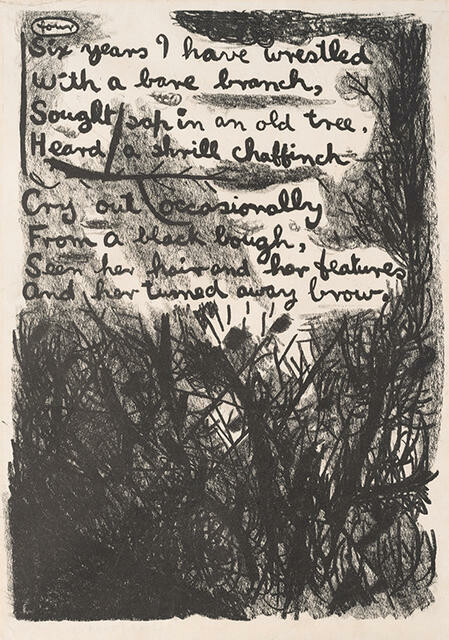 four
Six years I have wrestled
With a bare branch,
Sought sap in an old tree,
Heard a shrill chaffinch
Cry out occasionally
From a black bough,
Seen her hair and her features
and her turned away brow.